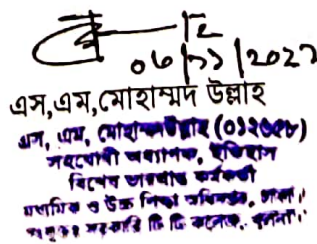 ০৬/১১/2027
এস,এম,মোহাম্মদ উল্লাহ
এস, এম, মোহাম্মদ উল্লাহ (০১২৬৫৮)
সহযোগী অধ্যাপক, ইতিহাস
বিশেষ ভারপ্রাপ্ত কর্মকর্তা
মাধ্যমিক ও উচ্চ শিক্ষা অধিদপ্তর, ঢাকা।
সরকারি কলেজ, খুলনা।